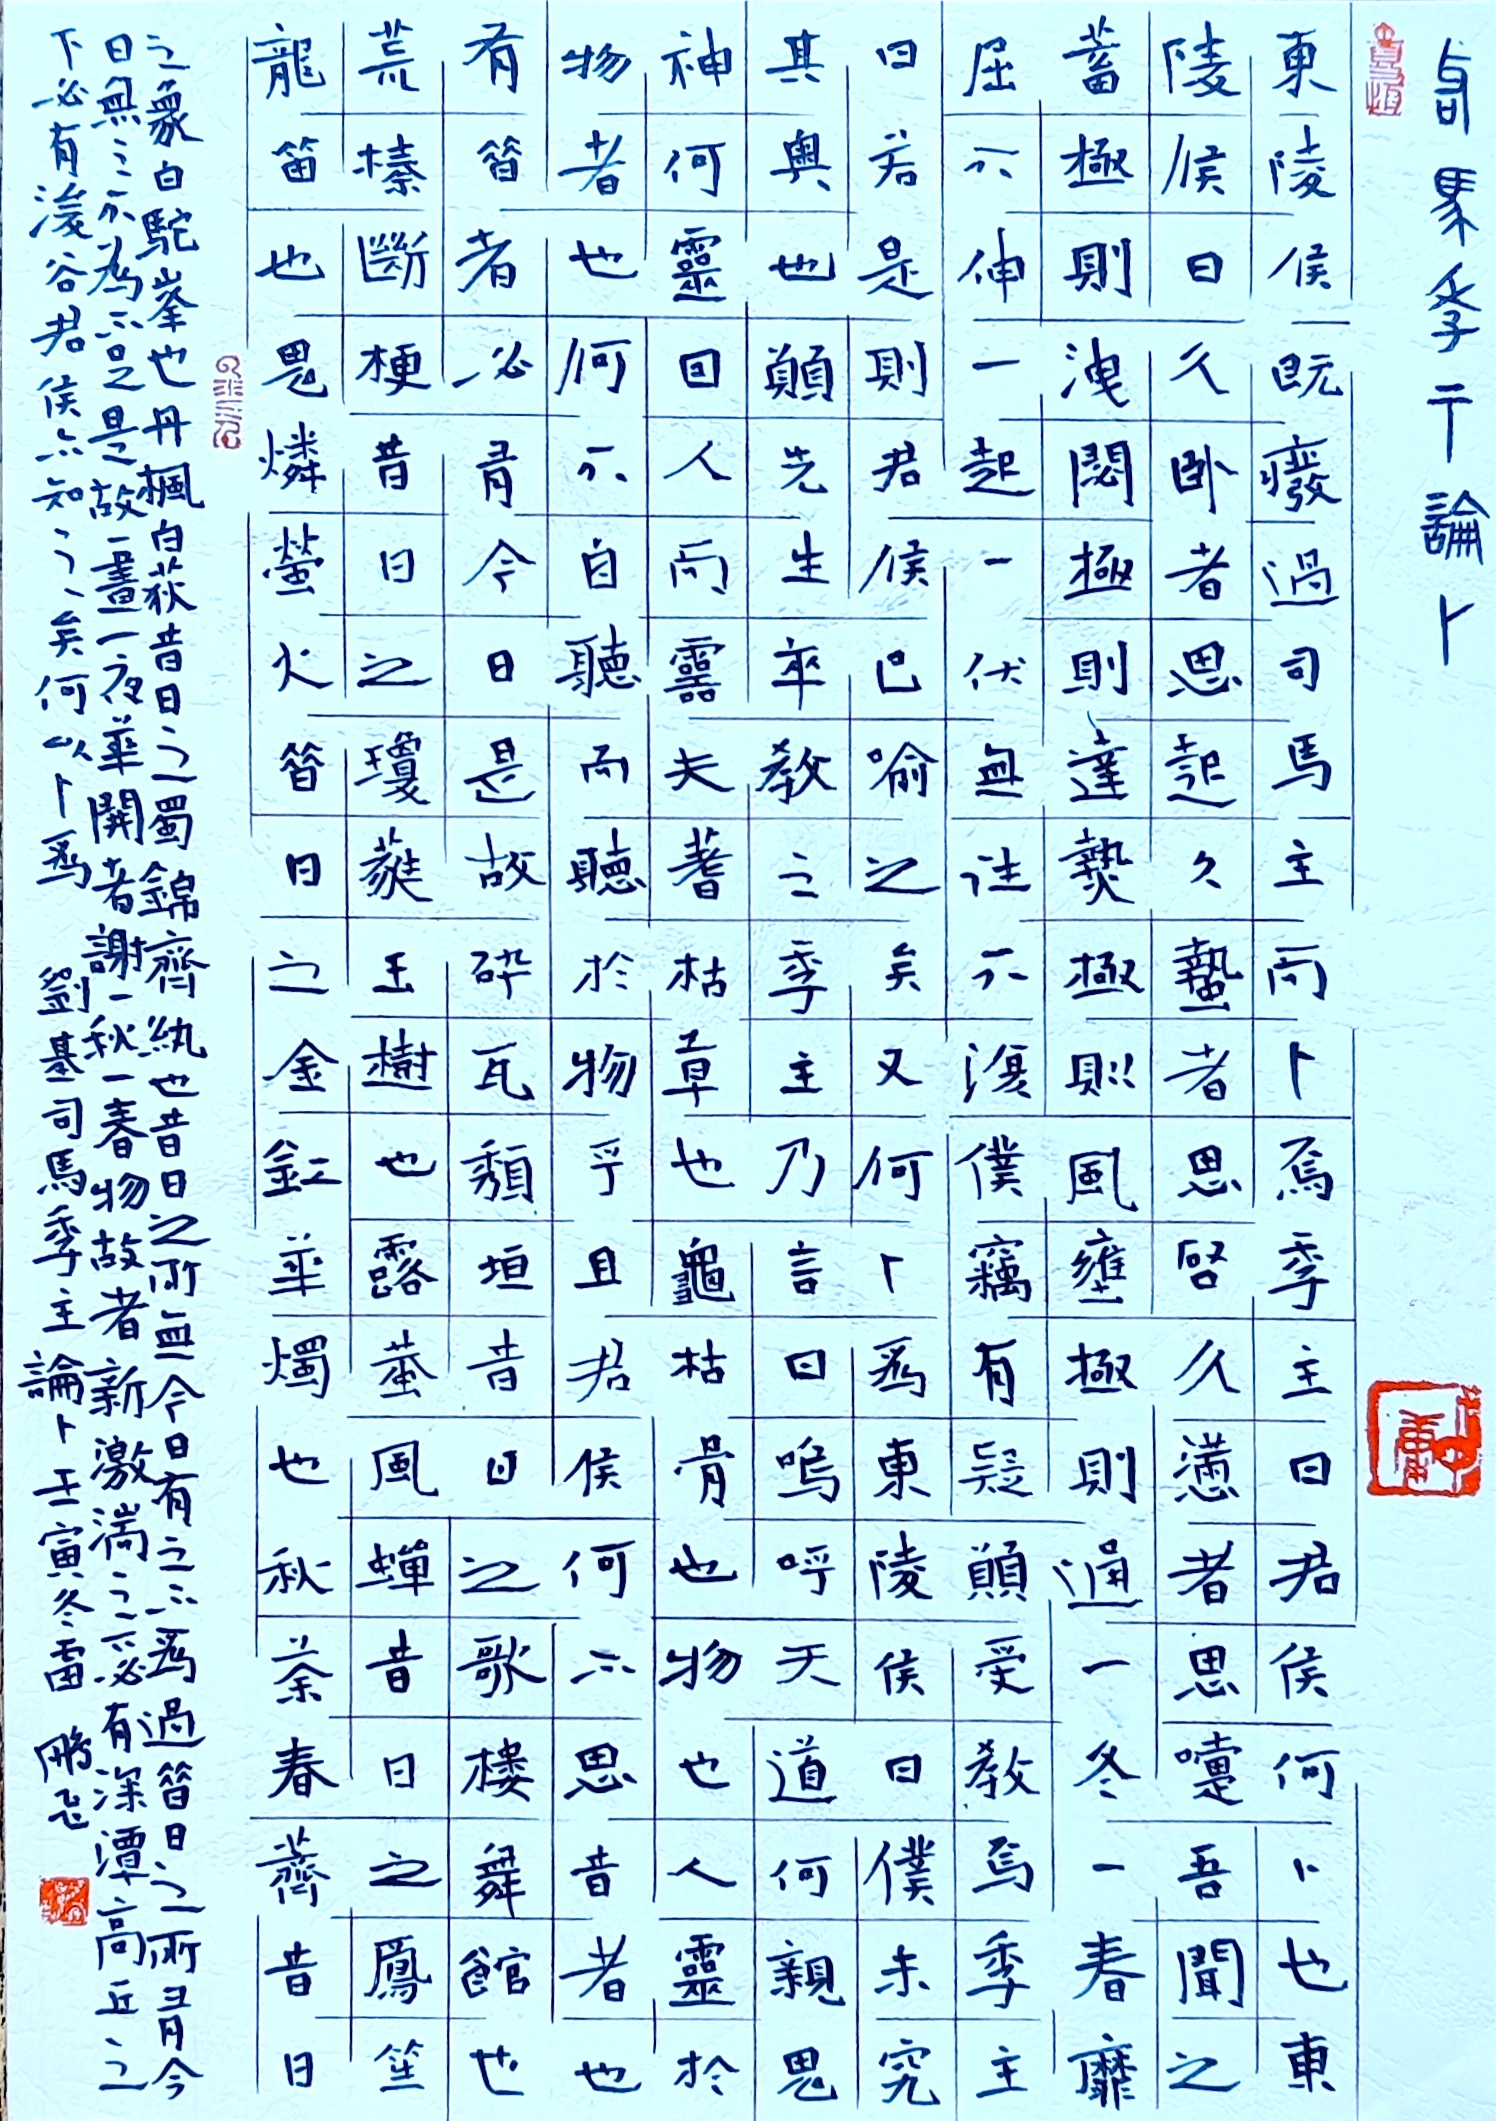 司馬季主論卜
東陵侯既廢過司馬季主而卜焉季主曰君侯何卜也東
陵侯曰久臥者思起久蟄者思啓久懣者思嚏吾聞之
蓄極則洩閟極則達熱極則風壅極則通一冬一春靡
屈不伸一起一伏無往不復僕竊有疑願受教焉季主
曰若是則君侯已喻之矣又何卜爲東陵侯曰僕未究
其奧也願先生卒教之季主乃言曰嗚呼天道何親思
神何靈因人而靈夫蓍枯草也龜枯骨也物也人靈於
物者也何不自聽而聽於物乎且君侯何不思昔者也
有昝者必有今日是故碎瓦頹垣昔日之歌樓舞館也
荒榛斷梗昔日之瓊蕤玉樹也露蛬風蟬昔日之鳳笙
龍笛也鬼燐螢火昝日之金釭華燭也秋荼春薺昔日
之象白駝峯也丹楓白荻昔日之蜀錦齊紈也昔日之所無今日有之不爲過昝日之所有今
日無之不爲不足是故一晝一夜華開者謝一秋一春物故者新激湍之下必有深潭高丘之
下必有浚谷君侯亦知之矣何以卜爲 劉基司馬季主論卜 壬寅冬雷 鵬飛